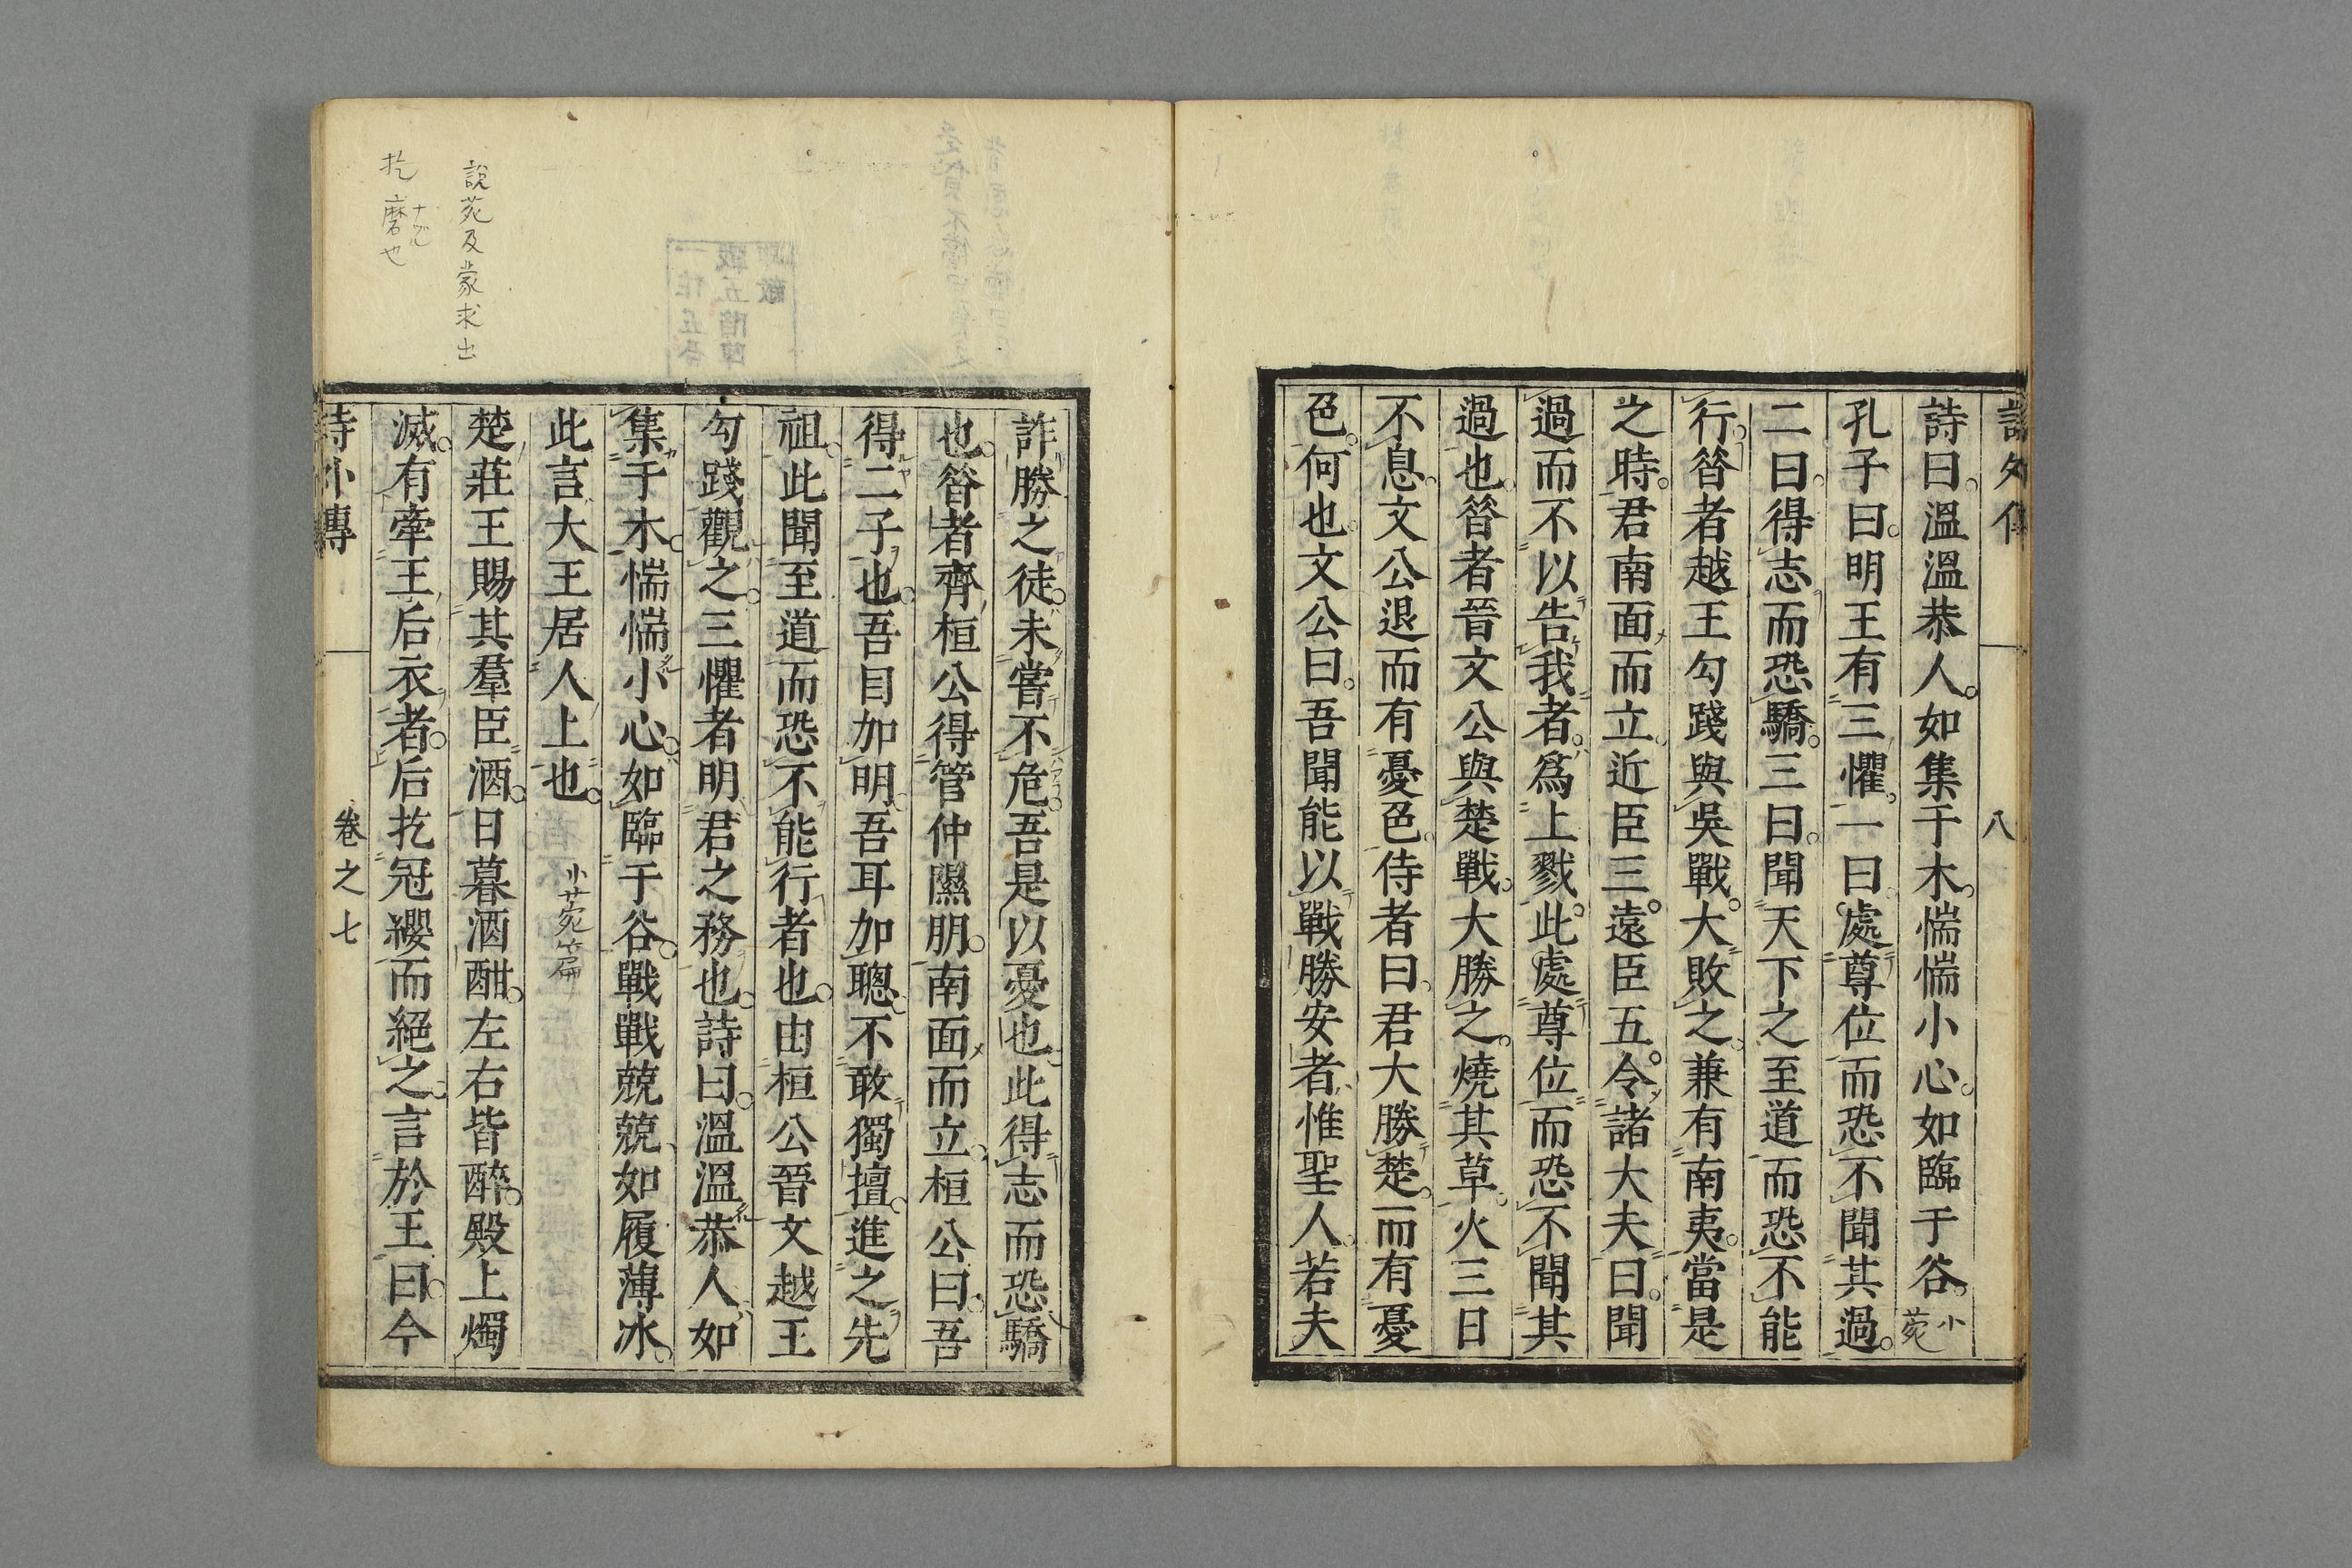 詩外傳
八
詩曰溫溫恭人如集于木惴惴小心如臨于谷小苑
孔子曰明王有三懼一曰處尊位而恐不聞其過
二曰得志而恐驕三曰聞天下之至道而恐不能
行昝者越王勾踐與吳戰大敗之兼有南夷當是
之時君南面而立近臣三遠臣五令諸大夫曰聞
過而不以告我者爲上戮此處尊位而恐不聞其
過也昝者晉文公與楚戰大勝之燒其草火三日
不息文公退而有憂色侍者曰君大勝楚而有憂
色何也文公曰吾聞能以戰勝安者惟聖人若夫
詐勝之徒未嘗不危吾是以憂也此得志而恐驕
也昝者齊桓公得管仲隰朋南面而立桓公曰吾
得二子也吾目加明吾耳加聰不敢獨擅進之先
祖此聞至道而恐不能行者也由桓公晉文越王
勾踐觀之三懼者明君之務也詩曰溫溫恭人如
集于木惴惴小心如臨于谷戰戰兢兢如履薄冰
此言大王居人上也
小苑篇
說苑及蒙求出
楚莊王賜其羣臣酒日暮酒酣左右皆醉殿上燭
扢 磨也
滅有牽王后衣者后扢冠纓而絕之言於王曰今
詩外傳
卷之七